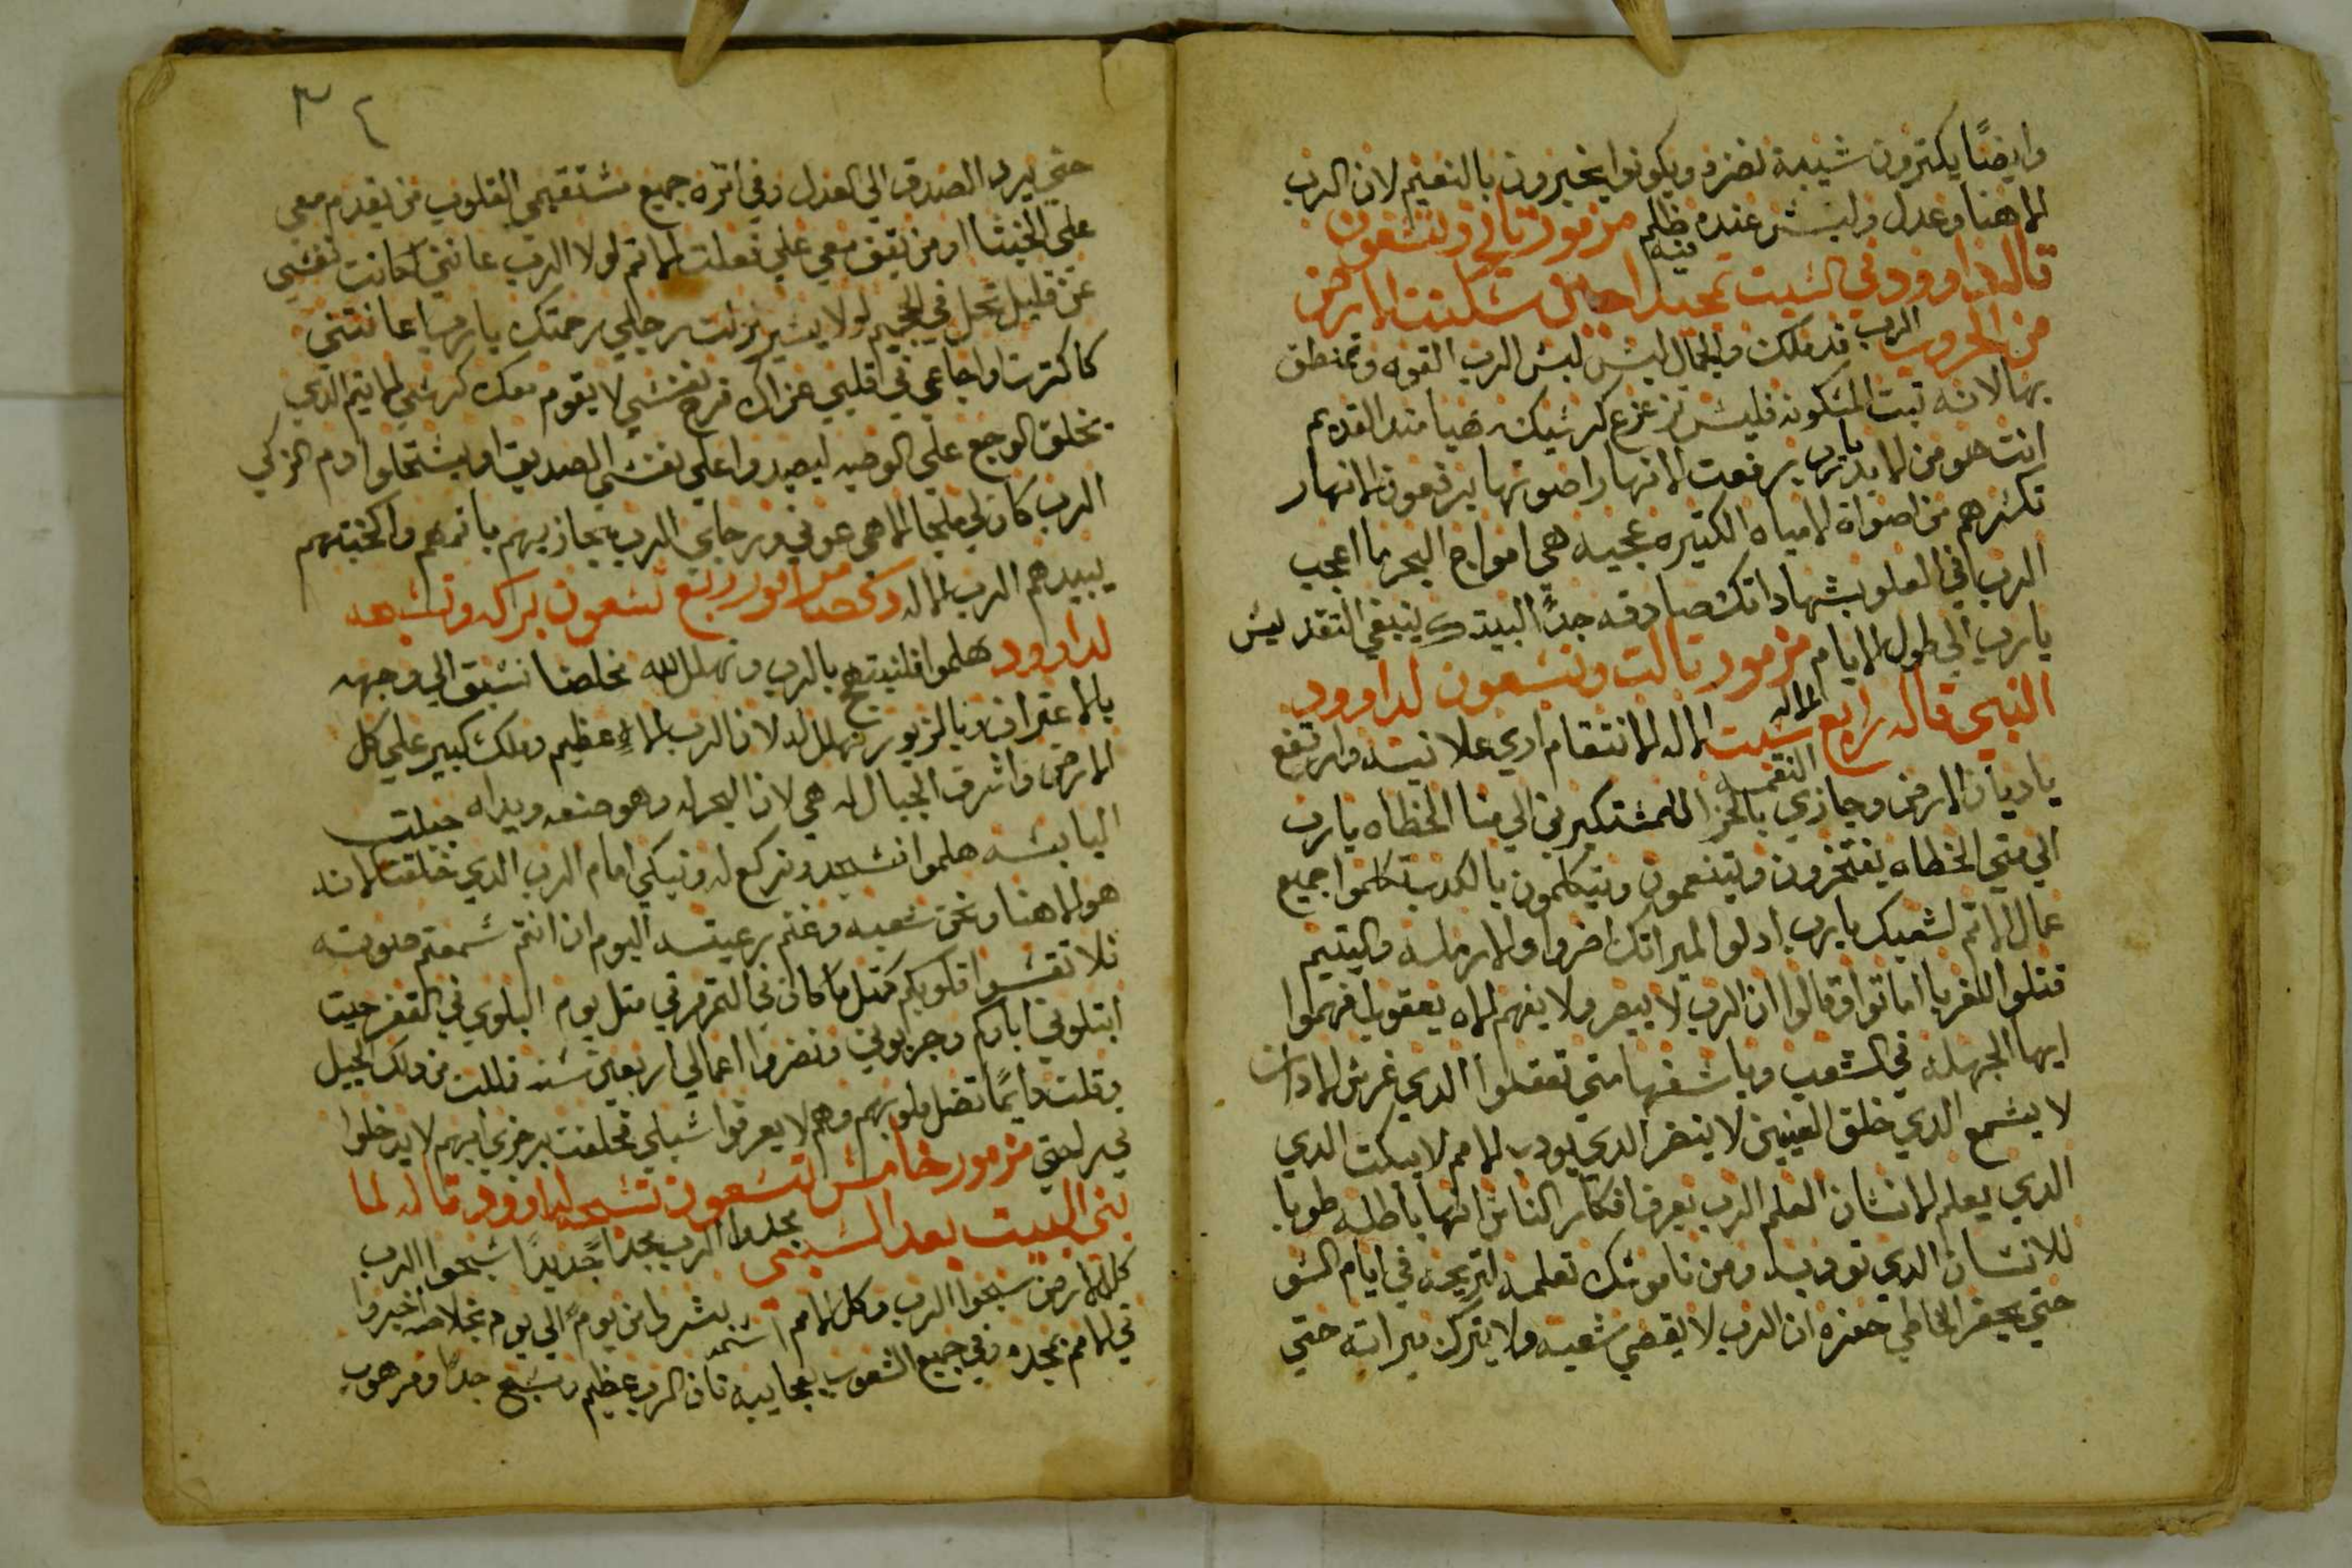 وايضًا يكترون شيبة نضره ويكونوا يخبرون بالنعيم لان الرب
الاهنا وعدل وليس عنده ظلم مزمور تاني وتسعون
فيه
قاله داوود في السبت تمجيد احين سكنت الارض
من الحروب الرب قد ملك والجمال لبس لبس الرب القوه وتمنطق
بها لانه تبت المسكونه فليس تزعزع كرسيك مهيا مند القديم
انت هو من الابد يارب رفعت الانهار اصوتها يرفعون الانهار
تكسرهم من اصواة المياه الكتيره عجيبه هي امواج البحر ما اعجب
الرب في العلو بشهاداتك صادقه جدًا لبيتك ينبغي التقديس
يارب الي طول الايام مزمور تالت وتسعون لداوود
النبي قاله رابع سبت الاله الاله الانتقام ادي علانيته وارتفع
يا ديان الارض وجازي بالجزا النقمه للمستكبرين الي متا الخطاه يارب
الي متي الخطاه يفتخرون ويتنعمون ويتكلمون بالكدب تكلموا جميع
عمال الاتم لشعبك يارب ادلوا لميراتك اضروا ولارمله واليتيم
قتلوا الغربا اماتوا وقالوا ان الرب لا يبصر ولا يفهم الاه يعقوب افهموا
ايها الجهله في الشعب ويا سفها متي تعقلوا الدي غرس الادان
لا يسمع الدي خلق العينين لا ينضر الدي يودب الامم لا يبكت الدي
الدي يعلم الانسان العلم الرب يعرف افكار الناس انها باطله طوبا
للانسان الدي تودبه ومن ناموسك تعلمه لتريحه في ايام السو
حتي يحفر الخاطي حفره ان الرب لا يقصي شعبه ولا يترك ميراته حتي
٣٤
حتي يرد الصدق الي العدل وفي اتره جميع مستقيمي القلوب من يقدم معي
علي الخبتا او من يقف معي علي فعلت الاتم لولا الرب عانني كانت نفسي
عن قليل تحل في الجحيم لولا يسير زلت رجلي رحمتك يارب اعانتني
كا كترت اوجاعي في قلبي عزاك فرح نفسي لا يقوم معك كرسي الاتم الدي
يخلق الوجع علي الوصيه ليصيدوا علي نفس الصديق او يستحلوا ادم الزكي
الرب كان لي ملجا الاهي عوني ورجاي الرب يجازيهم باتمهم وكخبتهم
يبيدهم الرب الاله دكصا مزمور رابع تسعون بركه وتسبحه
لداوود هلموا فلنبتهج بالرب ونهلل لله مخلصنا نسبق الي وجهه
بالاعتراف وبالزبور نهلل له لان الرب الاهٍ عظيم وملك كبير علي كل
الارض واشرف الجبال له هي لان البحر له وهو صنعه ويداه جبلت
اليابسه هلموا نسجد ونركع له ونبكي امام الرب الدي خلقنا لانه
هو الاهنا ونحن شعبه وغنم رعيته اليوم ان انتم سمعتم صوته
فلا تقسوا قلوبكم كمتل ما كان في التمرمر متل يوم البلوي في القفر حيت
ابتلوني اباوكم وجربوني ونضروا اعمالي اربعين سنه مللت من دلك الجيل
وقلت دايمًا تضل قلوبهم وهم لا يعرفوا سبلي فحلفت برجزي انهم لا يدخلوا
في راحتي مزمور خامس تسعون تسبحه لداوود قاله لما
بني البيت بعد السبي مجدوا الرب مجدًا جديدًا سبحوا الرب
كل الارض سبحوا الرب وكل الامم اسمه بشروا من يومٍ الي يوم بخلاصه اخبروا
في الامم بمجده وفي جميع الشعوب بعجايبه فان الرب عظيم ومسبح جدًا ومرهوب